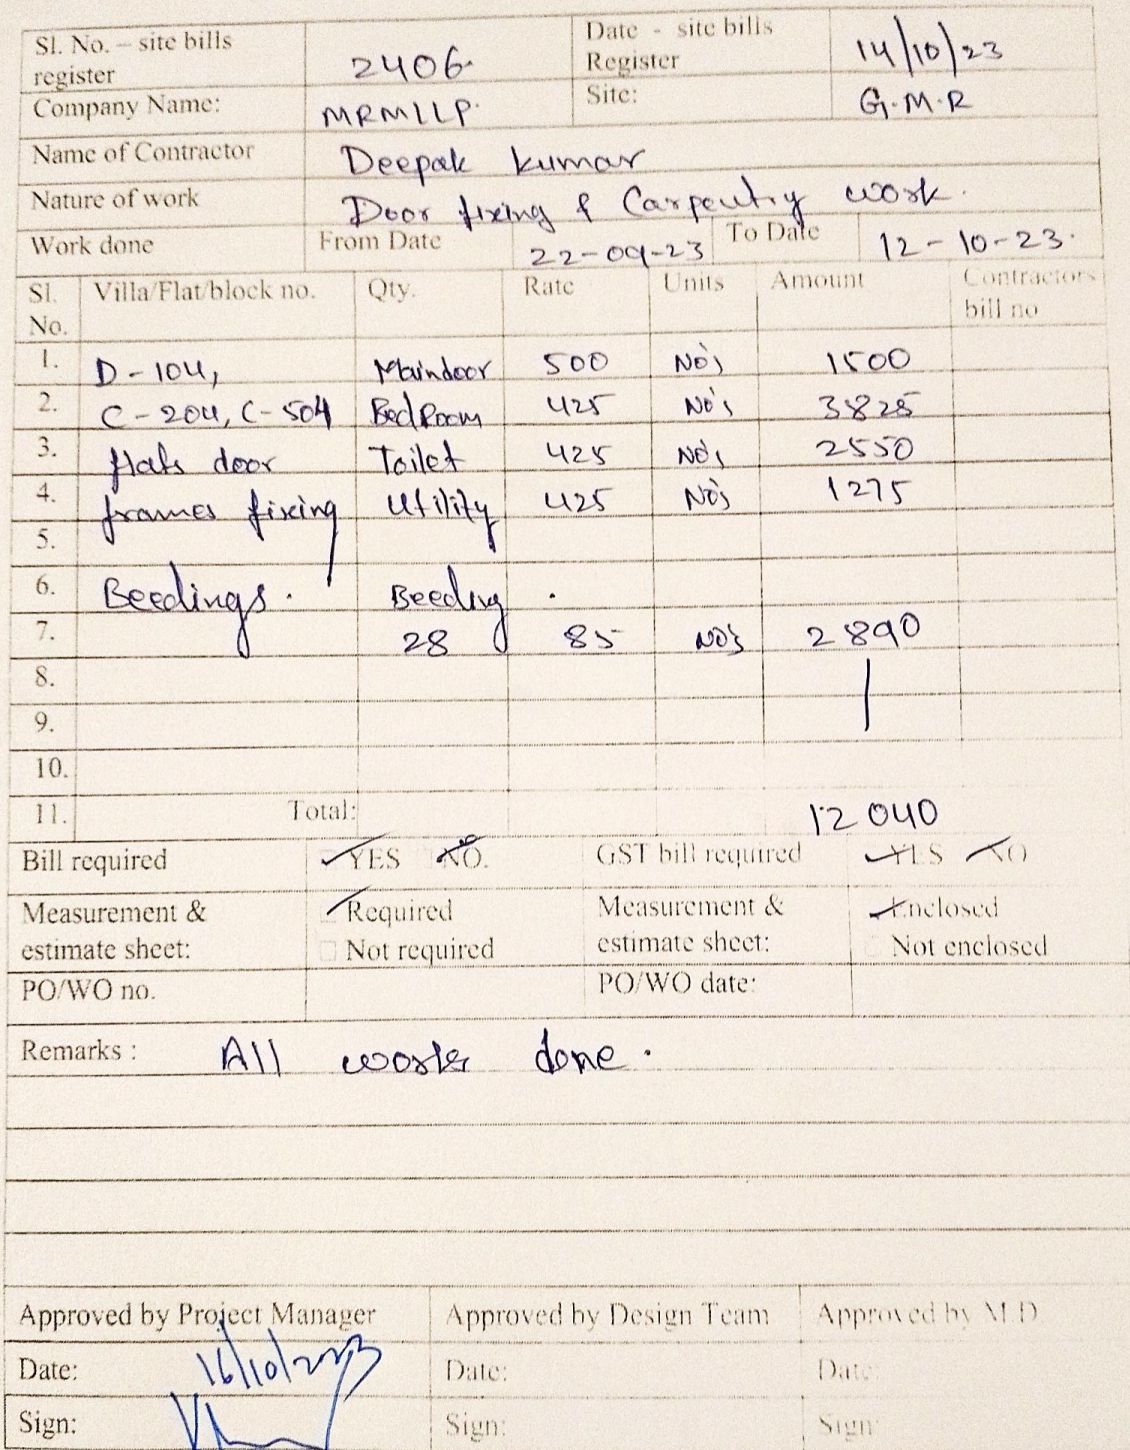 Sl. No. – site bills register 2406 Date - site bills Register 14/10/23
Company Name: MRMLLP Site: G.M.R
Name of Contractor Deepak kumar
Nature of work Door fixing & Carpentry work.
Work done From Date 22-09-23 To Date 12-10-23.
Sl. No. Villa/Flat/block no. Qty. Rate Units Amount Contractors bill no
1. D-104, Maindoor 500 No's 1500
2. C-204, C-504 BedRoom 425 No's 3825
3. flats door Toilet 425 No's 2550
4. frames fixing Utility 425 No's 1275
5.
6. Beedings. Beeding
7. 28 85 No's 2890
8.
9.
10.
11. Total: 12040
Bill required YES NO. GST bill required YES NO
Measurement & estimate sheet: Required Measurement & estimate sheet: Enclosed
Not required Not enclosed
PO/WO no. PO/WO date:
Remarks : All works done.
Approved by Project Manager Approved by Design Team Approved by M.D
Date: 16/10/2023 Date: Date:
Sign: Sign: Sign: